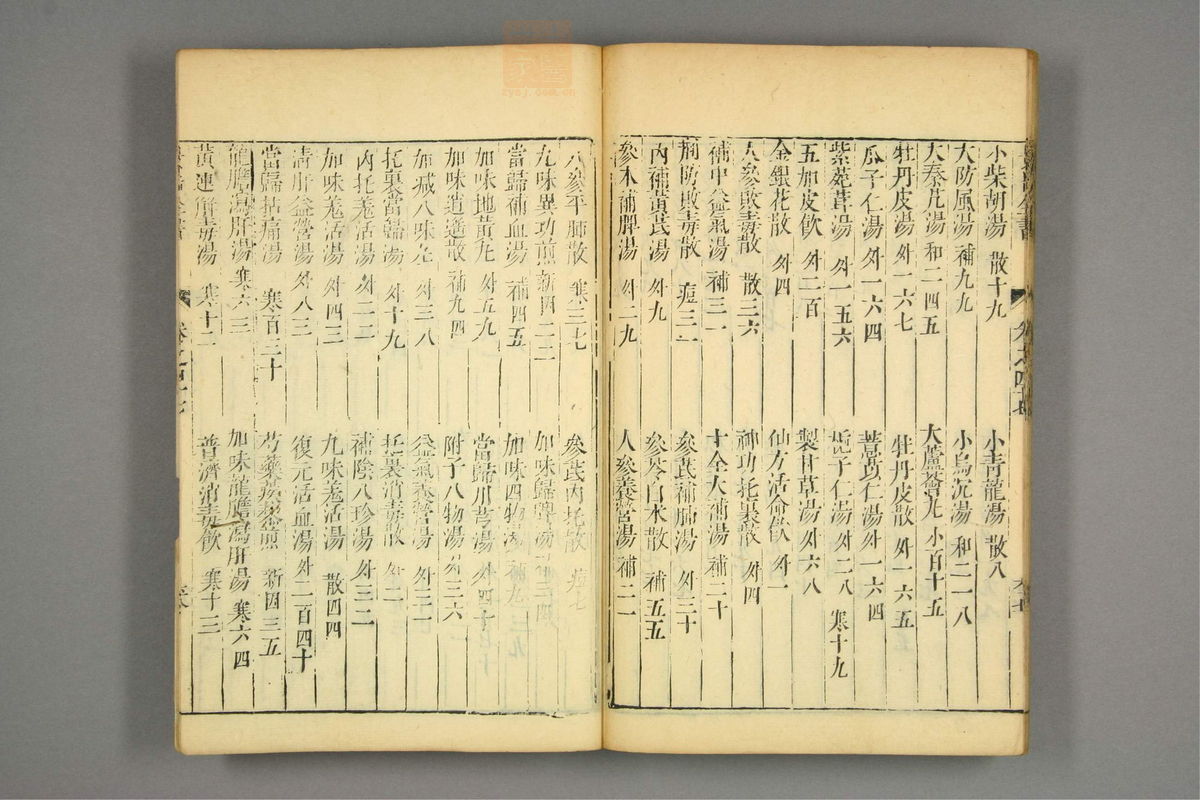 小柴胡湯 散十九 小青龍湯 散八
大防風湯 補九九 小烏沉湯 和二一八
大秦艽湯 和二四五 大蘆薈丸 小百十五
牡丹皮湯 外一六七 牡丹皮散 外一六五
瓜子仁湯 外一六四 薏苡仁湯 外一六四
紫菀茸湯 外一五六 梔子仁湯 外二八 寒十九
五加皮飲 外二百 製甘草湯 外六八
金銀花散 外四 仙方活命飲 外一
人參敗毒散 散三六 神功托裏散 外四
補中益氣湯 補三一 十全大補湯 補二十
荊防敗毒散 痘三一 參芪補膈湯 外三十
內補黃芪湯 外九 參苓白朮散 補五五
參朮補脾湯 外二九 人參養營湯 補二一
人參平肺散 寒三七 參芪內托散 痘七
九味異功煎 新四二二 加味歸脾湯 補三四
當歸補血湯 補四五 加味四物湯 補九
加味地黃丸 外五九 當歸川芎湯 外四十
加味逍遙散 補九四 附子八物湯 外三六
加減八味丸 外三八 益氣養營湯 外三二
托裏當歸湯 外十九 托裏消毒散 外二
內托羌活湯 外二二 補陰八珍湯 外三二
加味羌活湯 外四三 九味羌活湯 散四四
清肝益營湯 外八三 復元活血湯 外二百四十
當歸拈痛湯 寒百三十 芍藥蒺藜煎 新四三五
龍膽瀉肝湯 寒六三 加味龍膽瀉肝湯 寒六四
黃連解毒湯 寒十二 普濟消毒飲 寒十三